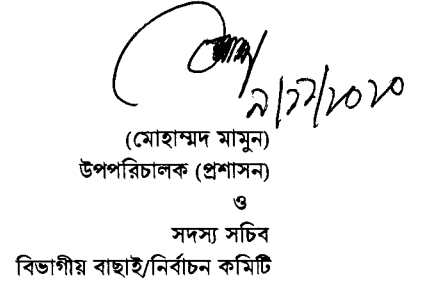 ৯/১১/২০২০
(মোহাম্মদ মামুন)
উপপরিচালক (প্রশাসন)
ও
সদস্য সচিব
বিভাগীয় বাছাই/নির্বাচন কমিটি